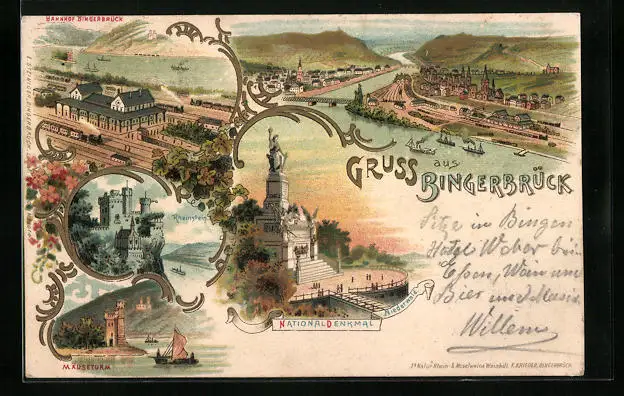 BAHNHOF BINGERBRÜCK
GRUSS aus
BINGERBRÜCK
Rheinstein
Sitze in Bingen
Hotel Weber beim
Essen, Wein und
Bier und Musik.
Willem
Niederwald
NATIONALDENKMAL
MÄUSETURM
F. KRIEGER, BINGERBRÜCK.